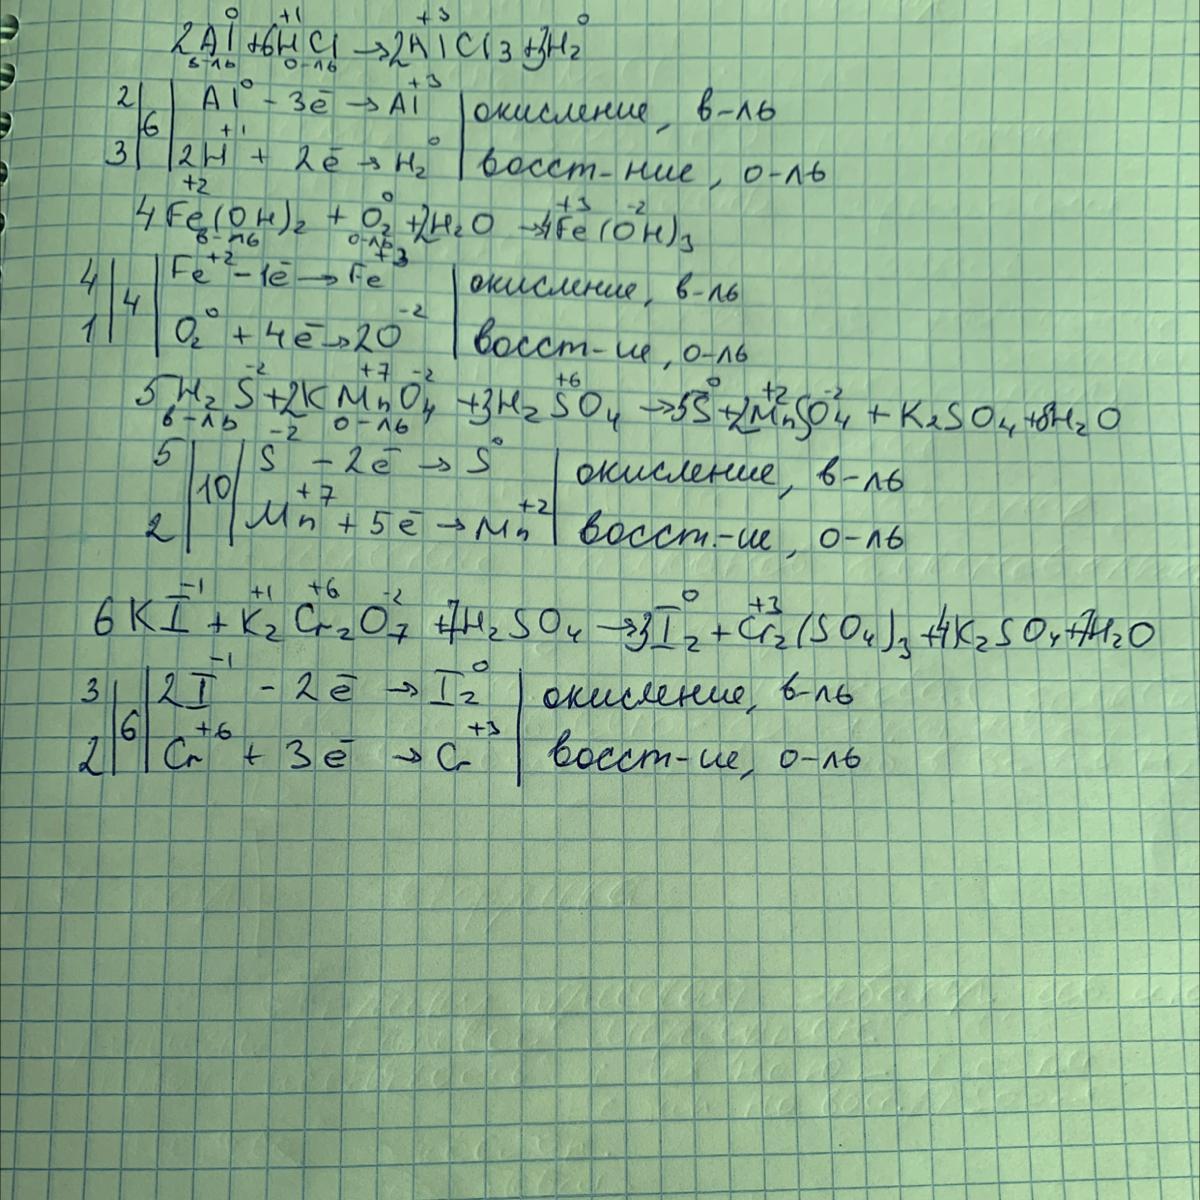 0 +1 +3 0
2Al + 6HCl → 2AlCl3 + 3H2
в-ль о-ль
2 | 6 | Al0 - 3ē → Al+3 | окисление, в-ль
3 | 2H+1 + 2ē → H20 | восст-ние, о-ль
+2 0 +3 -2
4Fe(OH)2 + O2 + 2H2O → 4Fe(OH)3
в-ль о-ль
4 | 4 | Fe+2 - 1ē → Fe+3 | окисление, в-ль
1 | O20 + 4ē → 2O-2 | восст-ие, о-ль
-2 +7 -2 +6 0 +2 -2
5H2S + 2KMnO4 + 3H2SO4 → 5S + 2MnSO4 + K2SO4 + 8H2O
в-ль о-ль
5 | 10 | S-2 - 2ē → S0 | окисление, в-ль
2 | Mn+7 + 5ē → Mn+2 | восст.-ие, о-ль
-1 +1 +6 -2 0 +3
6KI + K2Cr2O7 + 7H2SO4 → 3I2 + Cr2(SO4)3 + 4K2SO4 + 7H2O
3 | 6 | 2I-1 - 2ē → I20 | окисление, в-ль
2 | Cr+6 + 3ē → Cr+3 | восст-ие, о-ль